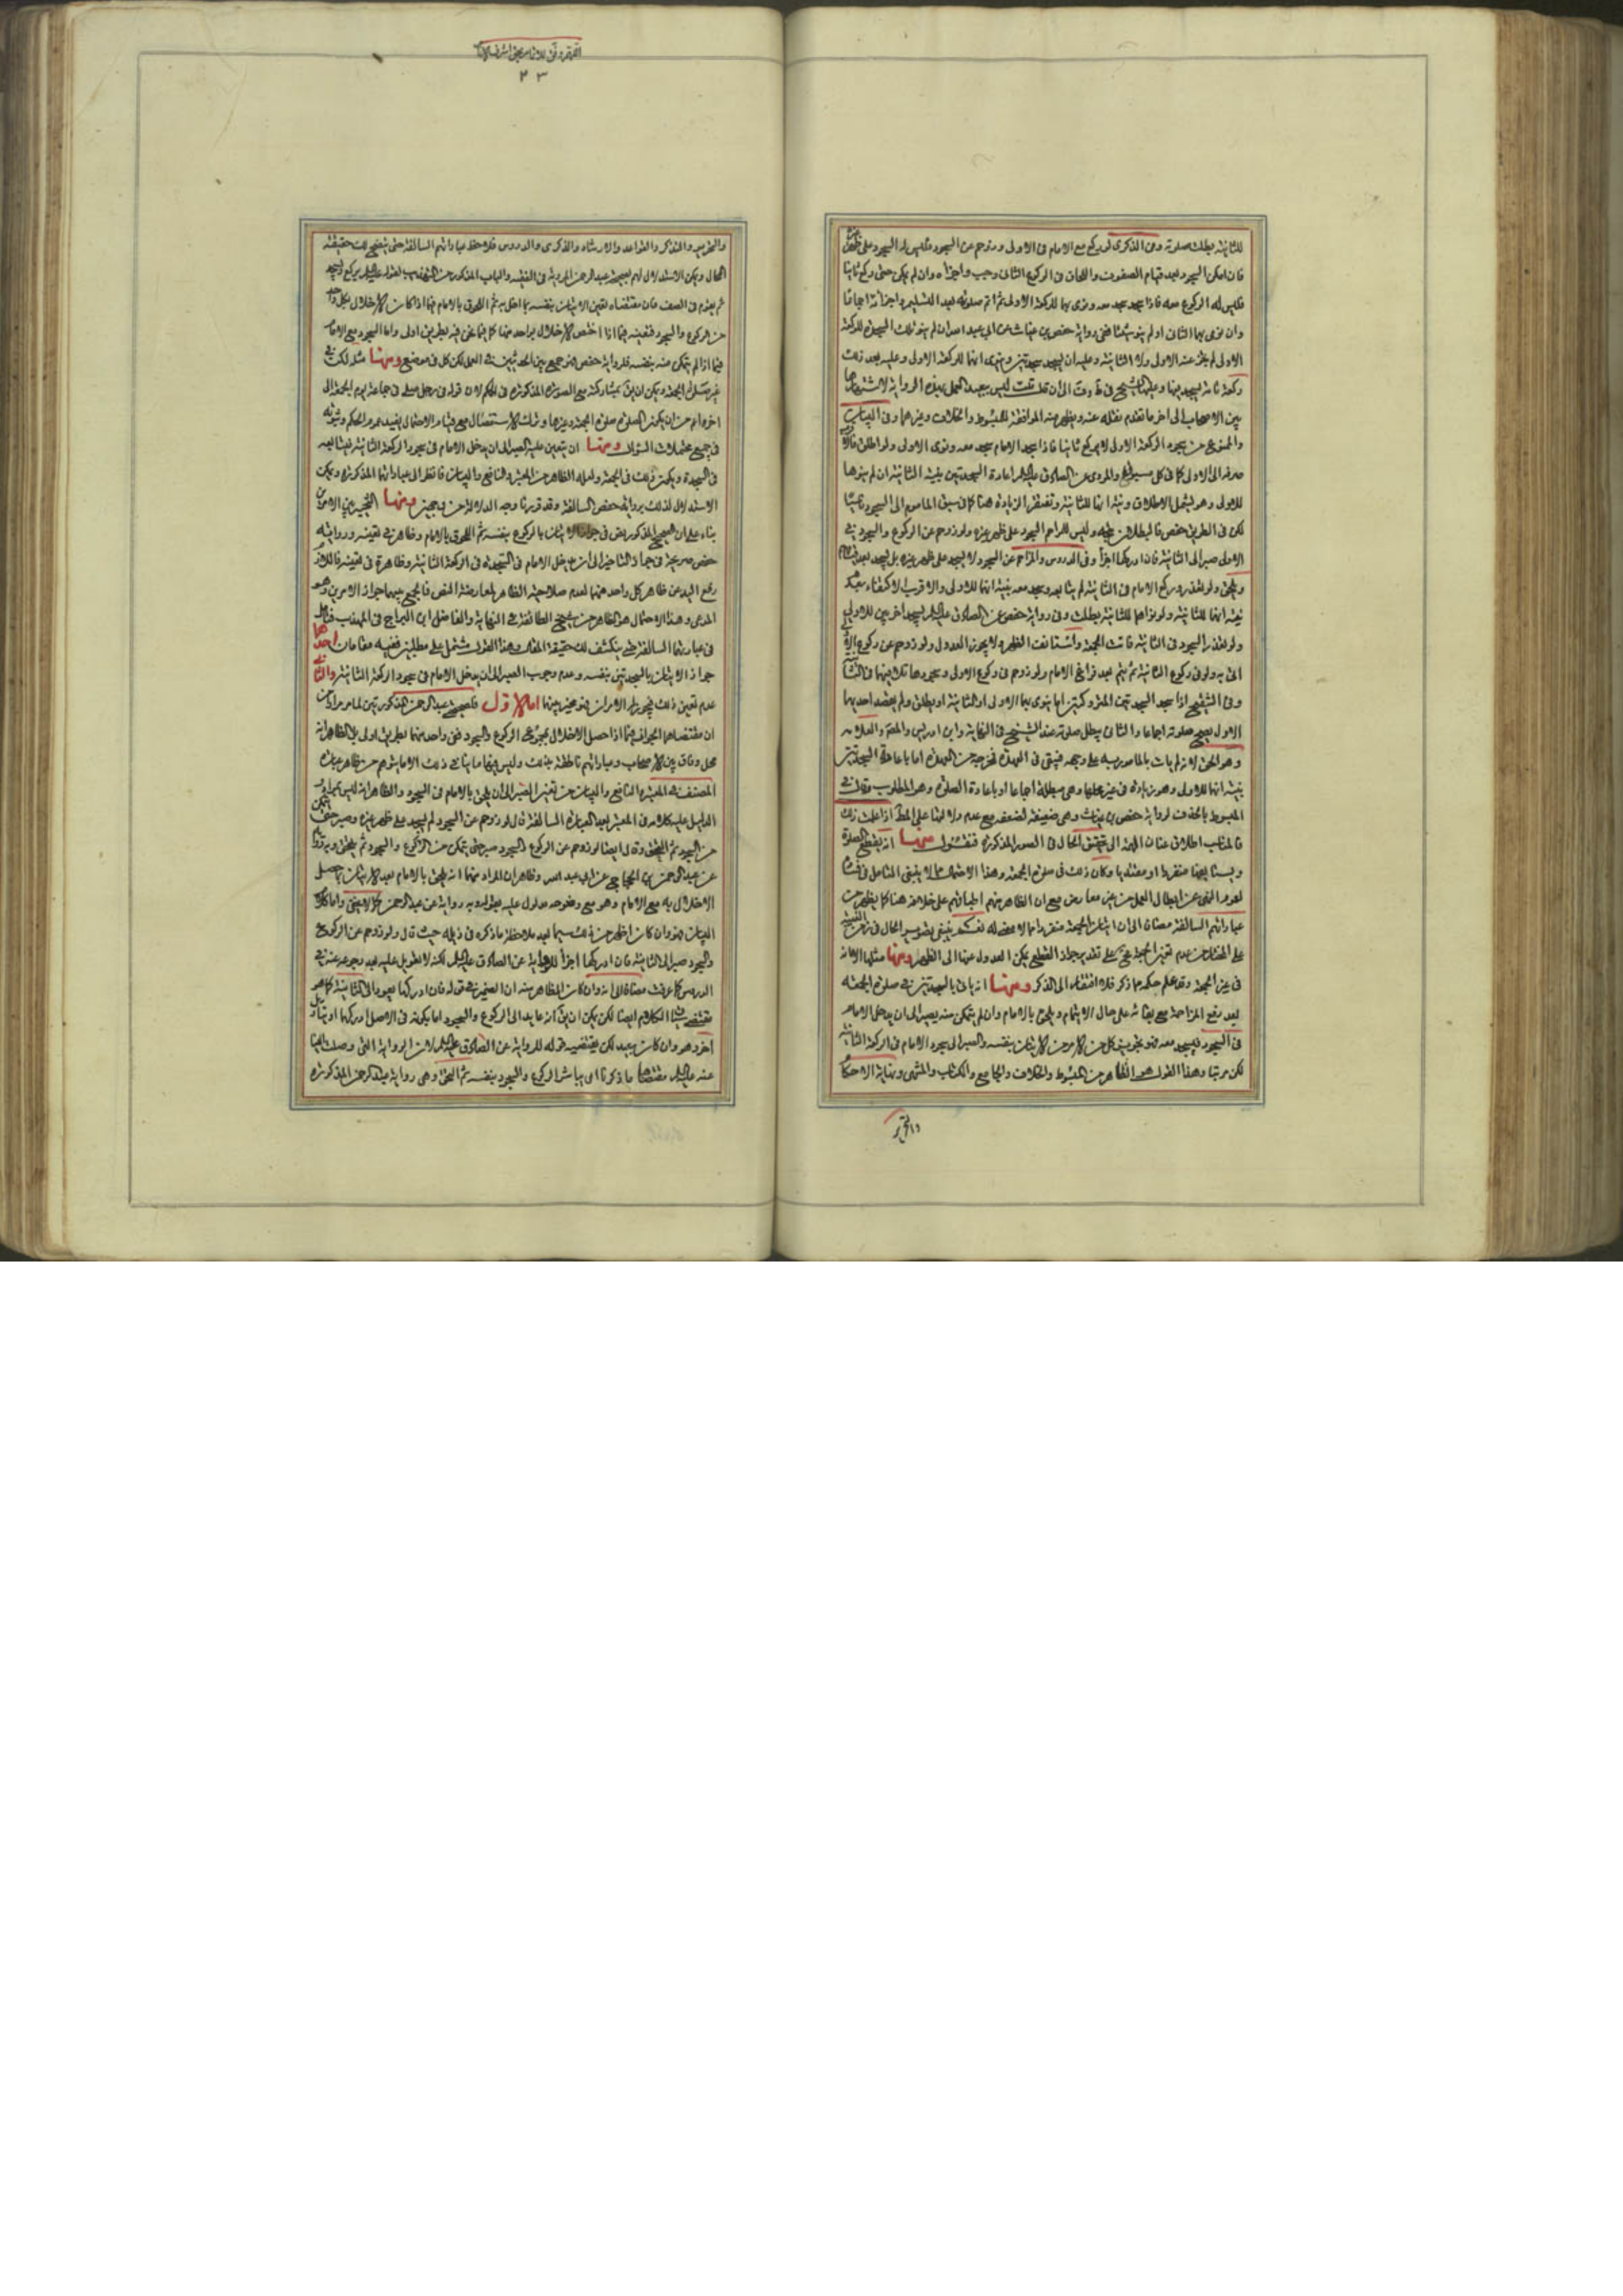 للثانية بطلت صلوته وفى الذكرى لو ركع مع الامام فى الاولى وزوحم عن السجود فليس له السجود على ظهر
فان امكن السجود بعد قيام الصفوف واللحاق فى الركوع الثانى وجب واجزاه وان لم يكن حتى ركع ثانيا
فليس له الركوع معه فاذا سجد سجد معه ونوى بهما للركعة الاولى ثم اتم صلوته بعد التسليم واجزأته اجماعا
وان نوى بهما الثانى او لم ينو شيئا ففى رواية حفص بن غياث عن ابى عبد الله ان لم ينو تلك السجدة للركعة
الاولى لم يجز عنه الاولى ولا الثانية وعليه ان يسجد سجدتين وينوى انهما للركعة الاولى وعليه بعد ذلك
ركعة تامة يسجد فيها الى ان قال قلت ليس ببعيد العمل بهذه الرواية لاشتهارها
بين الاصحاب الى اخر ما تقدم نقله عنه ويظهر منه الموافقة للمبسوط والخلاف وغيرهما وفى البيان
والممنوع من سجود الركعة الاولى لا يركع ثانيا فاذا سجد الامام سجد معه ونوى الاولى ولو اطلق
صرف الى الاولى كما فى كل مسبوق والمروى عن الصادق عليه السلام اعادة السجدتين بنية الثانية ان لم ينوها
للاولى وهو يشمل الاطلاق ونية انها للثانية وتغتفر الزيادة هنا كما فى سبق الماموم الى السجود
لكن فى الطريق حفص فالبطلان متجه وليس للمزاحم السجود على ظهر غيره ولو زوحم عن الركوع والسجود فى
الاولى صبر الى الثانية فان ادركها اجزأ وفى الدروس والمزاحم عن السجود لا يسجد على ظهر غيره بل يسجد بعد
ويلحق ولو تعذر وركع الامام فى الثانية لم يتابعه ويسجد معه بنية انها للاولى والاقرب الاكتفاء بعدم
نية انها للثانية ولو نواهما للثانية بطلت وفى رواية حفص عن الصادق عليه السلام يسجد اخريين للاولى
ولو تعذر السجود فى الثانية فاتت الجمعة واستانفت الظهر ولا يجوز العدول ولو زوحم عن ركوع الاولى
اتى به ولو فى ركوع الثانية ثم يتم بعد فراغ الامام ولو زوحم فى ركوع الاولى وسجودها
وفى التنقيح اذا سجد السجدتين المتروكتين اما ينوى بهما الاولى او الثانية او يطلق ولم يقصد احديهما
الاول يصح صلوته اجماعا والثانى يبطل صلوته عند الشيخ فى النهاية وابن ادريس والمحقق والعلامه
وهو الحق لانه لم يات بالمامور به على وجهه فيبقى فى العهدة فخروجه عن العهدة اما باعادة السجدتين
بنية انها للاولى وهو زيادة فى غير محلها وهى مبطلة اجماعا او باعادة الصلوة وهو المطلوب وقال فى
المبسوط بالحذف لرواية حفص بن غياث وهى ضعيفة لضعفه مع عدم دلالتها على المط اذا علمت ذلك
فالمناسب اطلاق عنان القلم الى تحقيق الحال فى الصور المذكورة فنقول منها انه يقطع الصلوة
ويستانفها منفردا او مقتديا وكان ذلك فى صلوة الجمعة وهذا الاحتمال مما لا ينبغى التامل فى فساده
لعموم النهى عن ابطال العمل من غير معارض مع ان الظاهر منهم اطباقهم على خلافه هنا كما يظهر من
عباراتهم السالفة مضافا الى ان اتيان الجمعة منفردا مما لا معنى له نعم ينبغى تصوير الحال فى زمن الغيبة
على المختار من عدم تعين الجمعة على تقدير جواز القطع يمكن العدول عنها الى الظهر ومنها مثلها الا انه
فى غير الجمعة وقد علم حكمه مما ذكر فلا افتقار الى الذكر ومنها انه ياتى بالسجدتين فى صلوة الجمعة
بعد رفع المزاحمة مع بقائه على حال الايتمام ويلحق بالامام وان لم يتمكن منه يصبر الى ان يدخل الامام
فى السجود فيسجد معه فهو تجويز كل من الامرين الاتيان بنفسه والصبر الى سجود الامام فى الركعة الثانية
لكن مرتبا وهذا القول هو الظاهر من المبسوط والخلاف والجامع والكتاب والمنتهى ونهاية الاحكام
والتحرير
٢٣
والتحرير والتذكرة والقواعد والارشاد والذكرى والدروس فلاحظ عباراتهم السالفة حتى يتضح لك حقيقة
الحال ويمكن الاستدلال لهم بصحيحة عبد الرحمن المروية فى الفقيه والباب المذكور من التهذيب لقوله عليه السلام يركع ويسجد
ثم يقوم فى الصف فان مقتضاه تعين الاتيان بنفسه بما اخل به ثم اللحوق بالامام فيما اذا كان الاخلال بكل واحد
من الركوع والسجود فتعينه فيما اذا اختص الاخلال بواحد منهما كما فيما نحن فيه بطريق اولى واما السجود مع الامام
فيما اذا لم يتمكن منه بنفسه فلرواية حفص فهو جمع بين الحديثين فى العمل لكن كل فى موضع ومنها مثله لكن فى
غير صلوة الجمعة ويمكن ان يق بمشاركته مع الصورة المذكورة فى الحكم لان قوله فى رجل صلى فى جماعة يوم الجمعة الى
اخره اعم من ان يكون الصلوة صلوة الجمعة وغيرها وترك الاستفصال مع قيام الاحتمال يفيد عموم الحكم وثبوته
فى جميع محتملات السؤال ومنها ان يتعين عليه الصبر الى ان يدخل الامام فى سجود الركعة الثانية فيتابعه
فى السجدة ويكون ذلك فى الجمعة ولعله الظاهر من المعتبر والنافع والبيان فانظر الى عباراتها المذكورة ويمكن
الاستدلال لذلك برواية حفص السالفة وقد قررنا وجه الدلالة ومنها التخيير بين الامرين
بناء على ان الصحيح المذكور نص فى جواز الاتيان بالركوع بنفسه ثم اللحوق بالامام وظاهر فى تعينه ورواية
حفص صريحة فى جواز التاخير الى ان يدخل الامام فى السجدة فى الركعة الثانية وظاهرة فى تعينه فاللازم
رفع اليد عن ظاهر كل واحد منهما لعدم صلاحية الظاهر لمعارضة النص فالجمع بينهما جواز الامرين وهو
المدعى وهذا الاحتمال هو الظاهر من شيخ الطائفة فى النهاية والفاضل ابن البراج فى المهذب فتامل
فى عباراتهما السالفة حتى ينكشف لك حقيقة المقال وهذا القول مشتمل على مطلبين ففيه مقامان احدهما
جواز الاتيان بالسجدتين بنفسه وعدم وجوب الصبر الى ان يدخل الامام فى سجود الركعة الثانية والثانى
عدم تعين ذلك فيجوز له الامران فهو مخير بينهما اما الاول فلصحيح عبد الرحمن المذكور
ان مقتضاهما الجواز فيما اذا حصل الاخلال بمجموعى الركوع والسجود ففى واحد منهما بطريق اولى بل الظاهر انه
محل وفاق بين الاصحاب وعباراتهم ناطقة بذلك وليس فيها ما ينافى ذلك الا ما يتوهم من ظاهر عبارة
المصنف فى المعتبر والنافع والبيان من تعين الصبر الى ان يلحق بالامام فى السجود والظاهر انه ليس بمراد
الدليل عليه كلامه فى المعتبر بعد العبارة السالفة قال لو زوحم عن السجود لم يسجد على ظهر غيره وصبر حتى يتمكن
من السجود ثم التحق وقال ايضا لو زوحم عن الركوع والسجود صبر حتى يتمكن من الركوع والسجود ثم يلتحق وبه
عن عبد الرحمن بن الحجاج عن ابى عبد الله وظاهر ان المراد منهما انه يلحق بالامام بعد الاتيان بما حصل
الاخلال به مع الامام وهو مع وضوحه مدلول عليه بقوله وبه رواية عن عبد الرحمن كما لا يخفى واما كلام
البيان فهو وان كان اظهر من ذلك سيما بعد ملاحظة ما ذكره فى ذيله حيث قال ولو زوحم عن الركوع
والسجود صبر الى الثانية فان ادركها اجزأ للرواية عن الصادق عليه السلام لكنه لا تعويل عليه بعد رجوعه عنه فى
الدروس كما عرفت مضافا الى انه وان كان الظاهر منه ان الضمير فى قوله فان ادركها يعود الى الثانية كما هو
مقتضى الكلام ايضا لكن يمكن ان يق انه عايد الى الركوع والسجود اما بكونه فى الاصل ادركهما او بتاويل
اخر وهو وان كان بعيد لكن يقتضيه قوله للرواية عن الصادق عليه السلام لان الرواية التى وصلت الينا
عنه عليه السلام مقتضاها ما ذكرنا اى يباشر الركوع والسجود بنفسه ثم التحق وهى رواية عبد الرحمن المذكورة